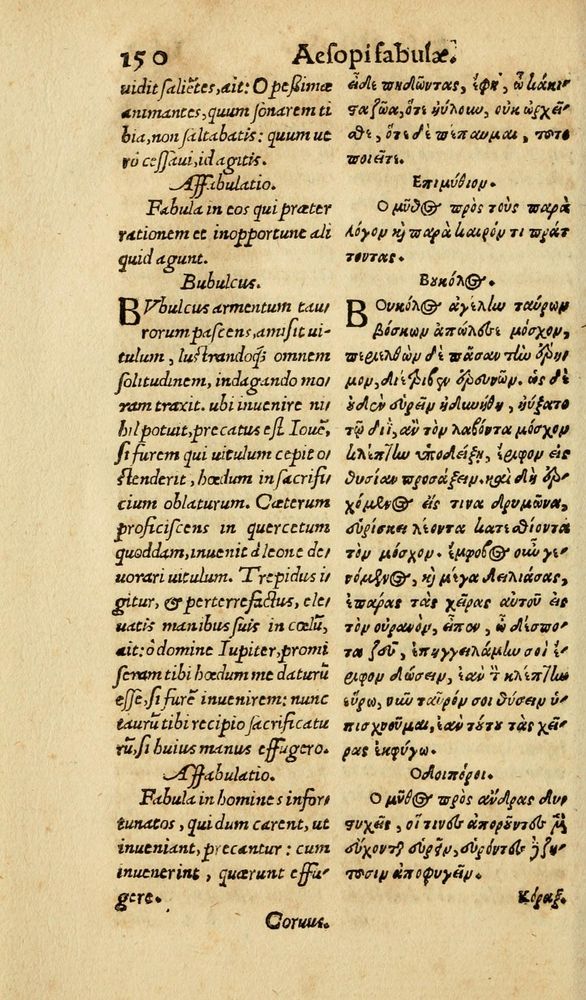 150 Aesopi fabulæ.
uidit saliẽtes, ait: O peßimæ
animantes, quum sonarem ti
bia, non saltabatis: quum ue
rò cessaui, id agitis.
Affabulatio.
Fabula in eos qui præter
rationem et inopportune ali
quid agunt.
Bubulcus.
BVbulcus armentum tau/
rorum pascens, amisit ui-
tulum, lustrandoq́; omnem
solitudinem, indagando mo/
ram traxit. ubi inuenire ni/
hil potuit, precatus est Iouẽ,
si furem qui uitulum cepit o/
stenderit, hœdum in sacrifi/
cium oblaturum. Cæterum
proficiscens in quercetum
quoddam, inuenit à leone de/
uorari uitulum. Trepidus i/
gitur, & perterrefactus, ele/
uatis manibus suis in cœlũ,
ait: ô domine Iupiter, promi
seram tibi hœdum me daturũ
esse, si furẽ inuenirem: nunc
taurũ tibi recipio sacrificatu
rũ, si huius manus effugero.
Affabulatio.
Fabula in homines infor/
tunatos, qui dum carent, ut
inueniant, precantur: cum
inuenerint, quærunt effu/
gere.
εἶδε πηδῶντας, ἔφη, ὦ κάκι-
στα ζῶα, ὅτε ηὔλουν, οὐκ ὠρχεῖ-
σθε, ὅτε δὲ πέπαυμαι, τοῦτο
ποιεῖτε.
Επιμύθιον.
Ο μῦθος πρὸς τοὺς παρὰ
λόγον κὴ παρὰ καιρόν τι πράτ
τοντας.
Βυκόλος.
ΒΟυκόλος ἀγέλην ταύρων
βόσκων ἀπώλεσε μόσχον,
περιελθὼν δὲ πᾶσαν τὴν ἔρη-
μον, διέτριβεν ἐρευνῶν. ὡς δὲ
οὐδὲν εὑρεῖν ἠδυνήθη, ηὔξατο
τῷ διῒ, ἂν τὸν λαβόντα μόσχον
κλέπτην ὑποδείξῃ, ἔριφον εἰς
θυσίαν προσάξειν. καὶ δὴ ἐρ
χόμενος εἴς τινα δρυμῶνα,
εὑρίσκει λέοντα κατεσθίοντα
τὸν μόσχον. ἔμφοβος οὖν γε
νόμενος, κὴ μέγα δειλιάσας,
ἐπάρας τὰς χεῖρας αὐτοῦ εἰς
τὸν οὐρανὸν, εἶπεν, ὦ δέσπο-
τα ζεῦ, ἐπηγγειλάμην σοι ἔ-
ριφον δώσειν, ἐὰν τὸν κλέπτην
εὕρω, νῦν ταῦρόν σοι θύσειν ὑ-
πισχνοῦμαι, ἐὰν τούτου τὰς χεῖ-
ρας ἐκφύγω.
Οδοιπόροι.
Ο μῦθος πρὸς ἄνδρας δυς
τυχεῖς, οἵ τινες ἀποροῦντες μὲν
εὔχονται εὑρεῖν, εὑρόντες δὲ ζη-
τοῦσιν ἀποφυγεῖν.
Κόραξ.
Coruus.